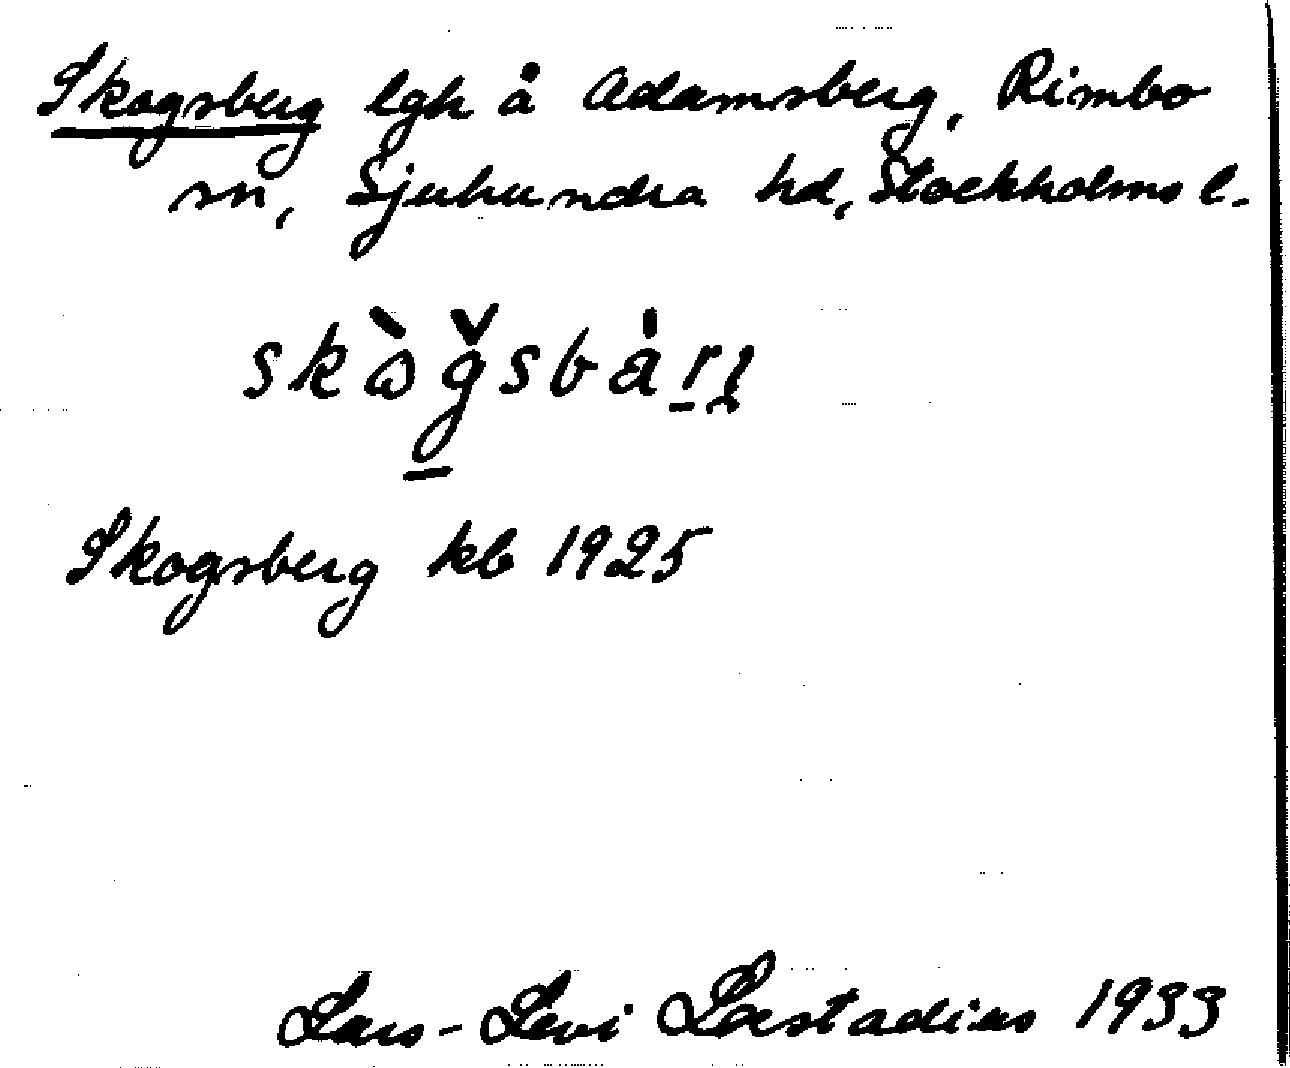 Skogsberg lgh å Adamsberg, Rimbo
sn, Sjuhundra hd, Stockholms l.
skὼǧsbȧrɪ
Skogsberg kb 1925
Lars-Levi Læstadius 1933